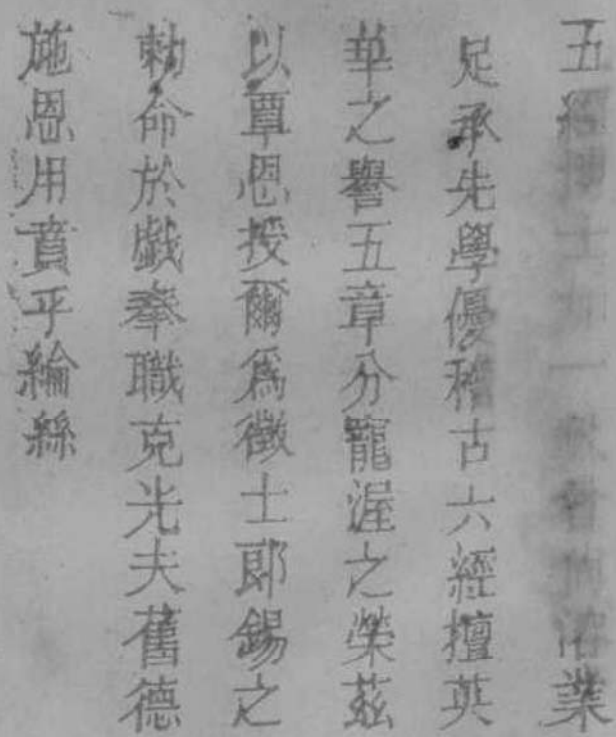 五經博士加一級曾興溶業
足承先學優稽古六經擅英
華之譽五章分寵渥之榮茲
以覃恩授爾爲徵士郎錫之
勅命於戲奉職克光夫舊德
施恩用賁乎綸綍